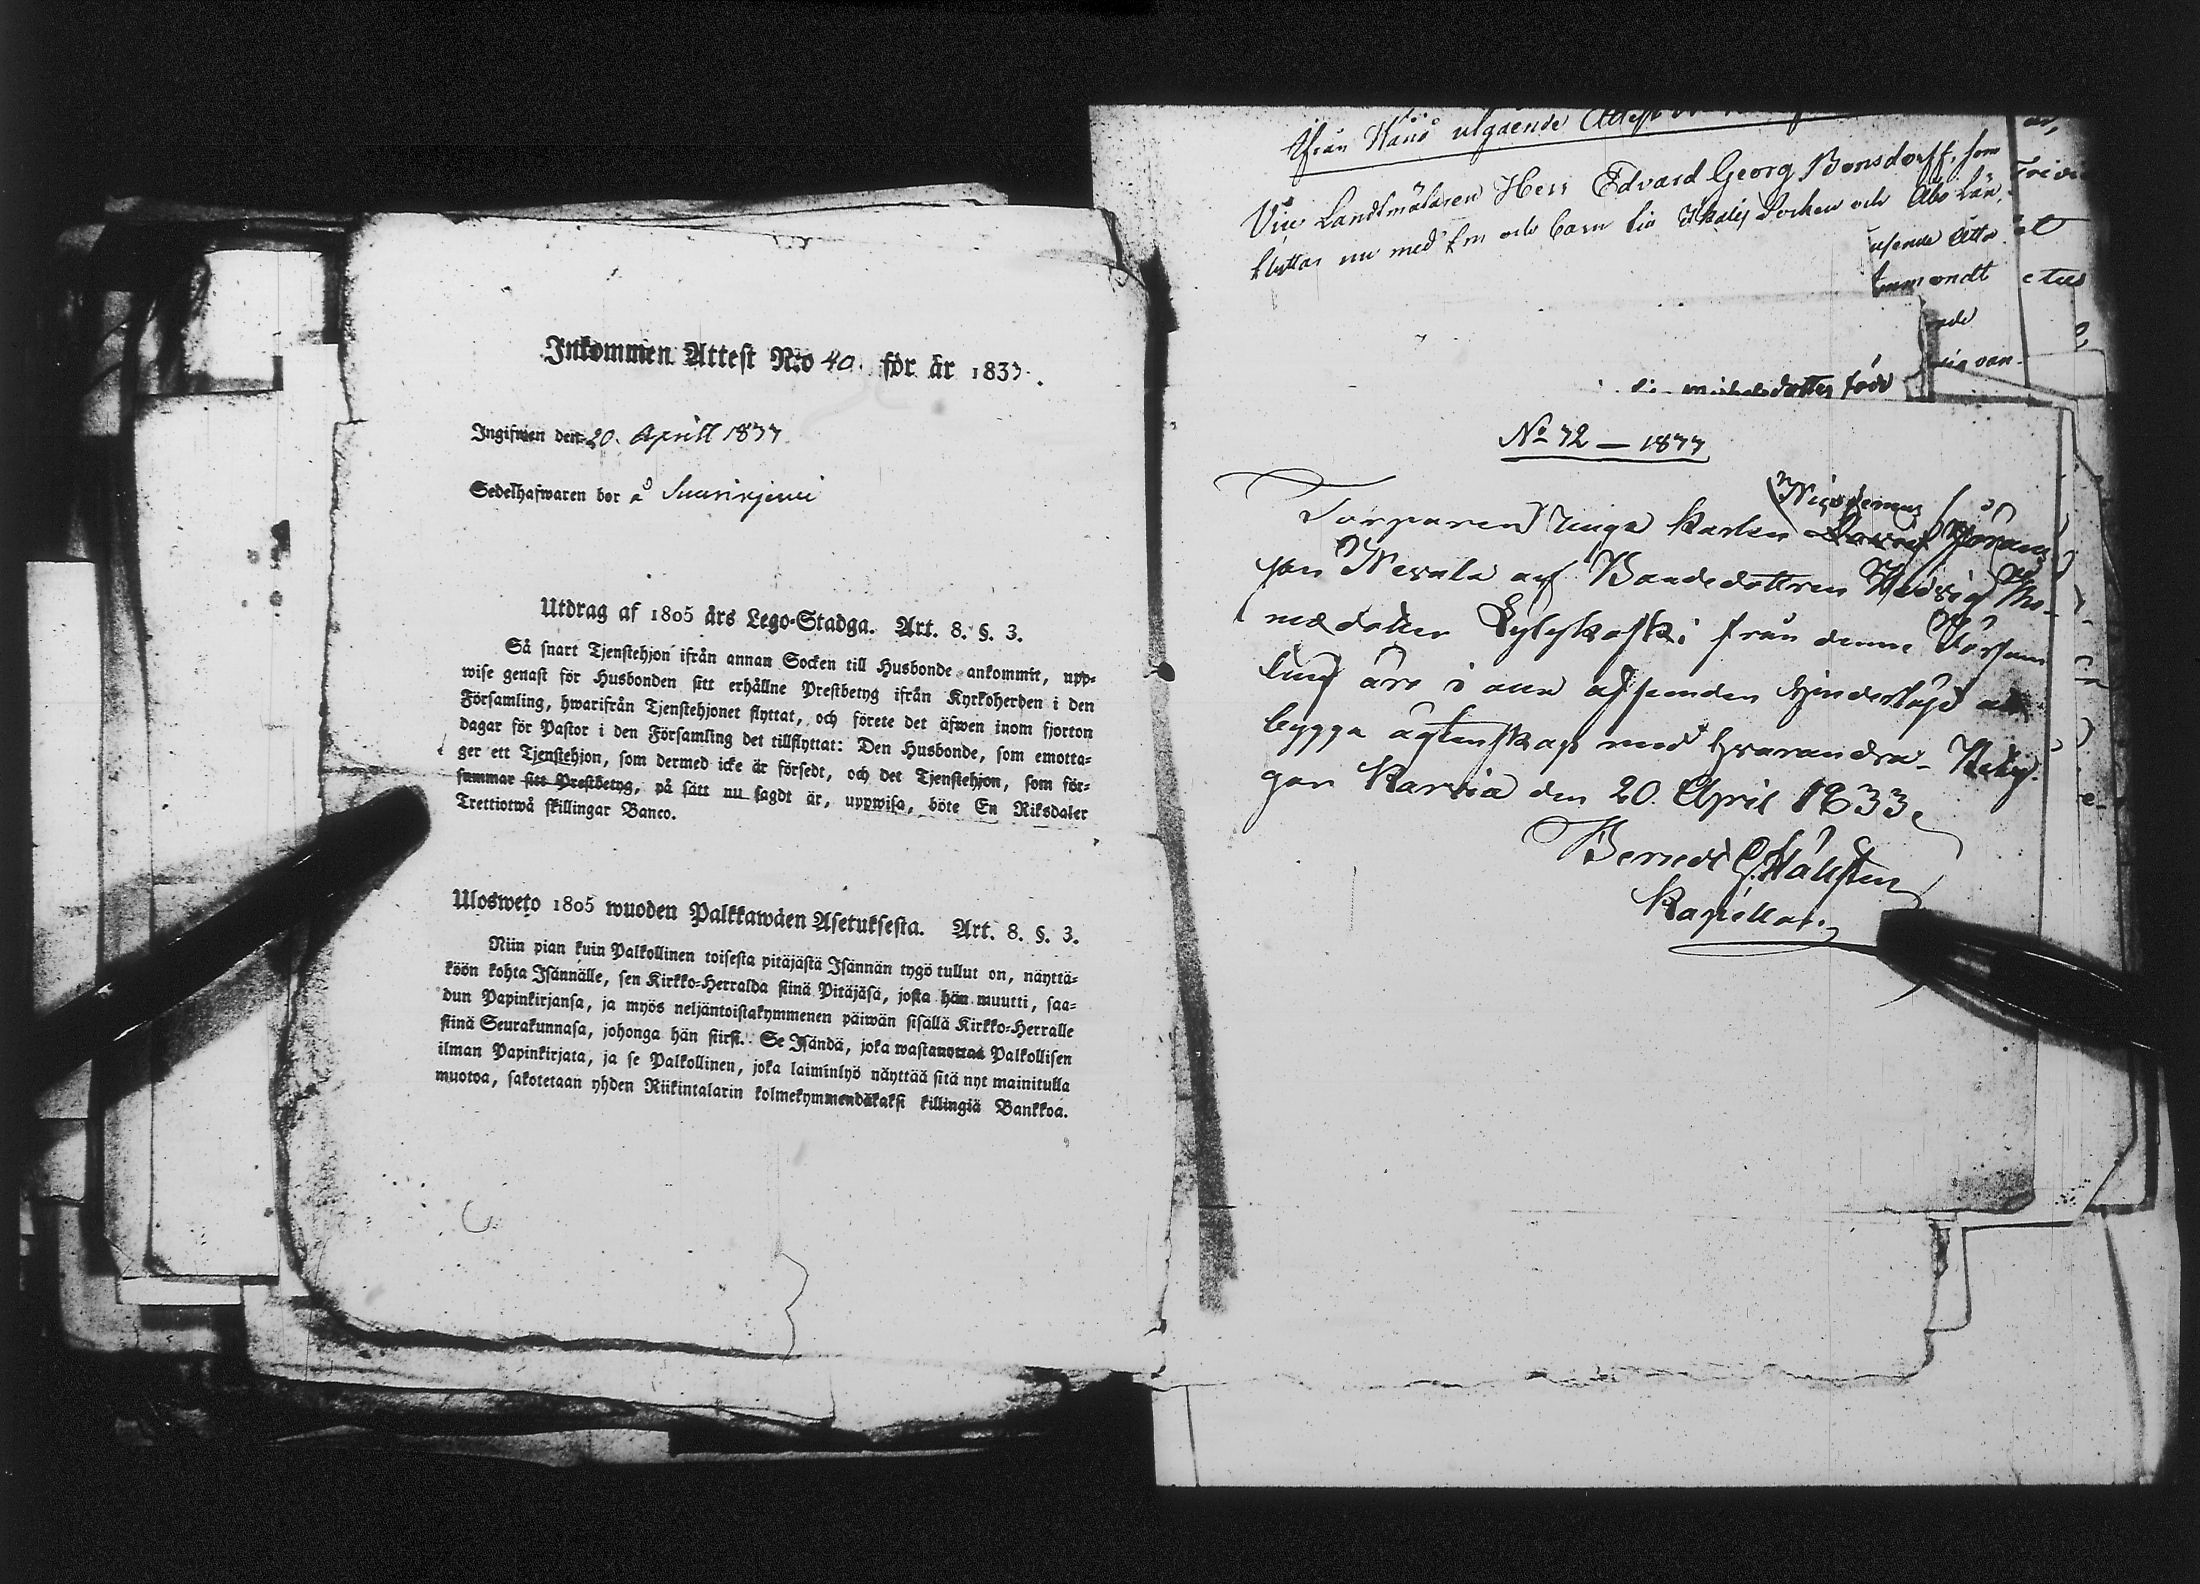 Inkommen Attest N:o 40. för år 1833.
Ingifwen den 20. Aprill 1833
Sedelhafwaren bor å Suurinjerwi
Utdrag af 1805 års Lego-Stadga. Art. 8. §. 3.
Så snart Tjenstehjon ifrån annan Socken till Husbonde ankommit, upp-
wise genast för Husbonden sitt erhållne Prestbetyg ifrån Kyrkoherden i den
Församling, hwarifrån Tjenstehjonet flyttat, och förete det äfwen inom fjorton
dagar för Pastor i den Församling det tillflyttat: Den Husbonde, som emotta-
ger ett Tjenstehjon, som dermed icke är försedt, och det Tjenstehjon, som för-
summar sitt Prestbetyg, på sätt nu sagdt är, uppwisa, böte En Riksdaler
Trettiotwå skillingar Banco.
Ulosweto 1805 wuoden Palkkawäen Asetuksesta. Art. 8. §. 3.
Niin pian kuin Palkollinen toisesta pitäjästä Isännän tygö tullut on, näyttä-
köön kohta Isännälle, sen Kirkko-Herralda siinä Pitäjäsä, josta hän muutti, saa-
dun Papinkirjansa, ja myös neljäntoistakymmenen päiwän sisällä Kirkko-Herralle
siinä Seurakunnasa, johonga hän siirsi. Se Isändä, joka wastanottaa Palkollisen
ilman Papinkirjata, ja se Palkollinen, joka laiminlyö näyttää sitä nyt mainitulla
muotoa, sakotetaan yhden Riikintalarin kolmekymmendäkaksi killingiä Bankkoa.
ifrån utgående Attest
Vice Landtmätaren Herr Edvard Georg Bonsdorff, som
flyttar nu med fru och barn til Ikalis Socken och Åbo Län,
michelsdotter född
No 72 – 1833
Nicodemus
Torparen unga Karlen Görans
son Nevala och Bondedottren Hedvig Tho-
mædotter Lylykoski från denna Försam
ling äro i anseenden hinderlöse att
bygga ägtenskap med hvarandra. Bety-
gar Karvia den 20. April 1833
Bernedt G. Hällsten
Kapellan.